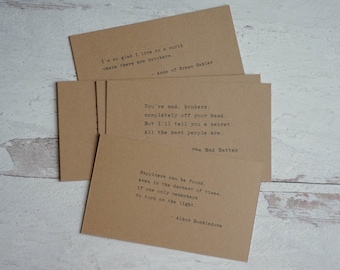 I'm so glad I live in a world
where there are Octobers.
- Anne of Green Gables
You're mad, bonkers,
completely off your head.
But I'll tell you a secret
All the best people are.
- The Mad Hatter
Happiness can be found,
even in the darkest of times,
if one only remembers
to turn on the light.
- Albus Dumbledore